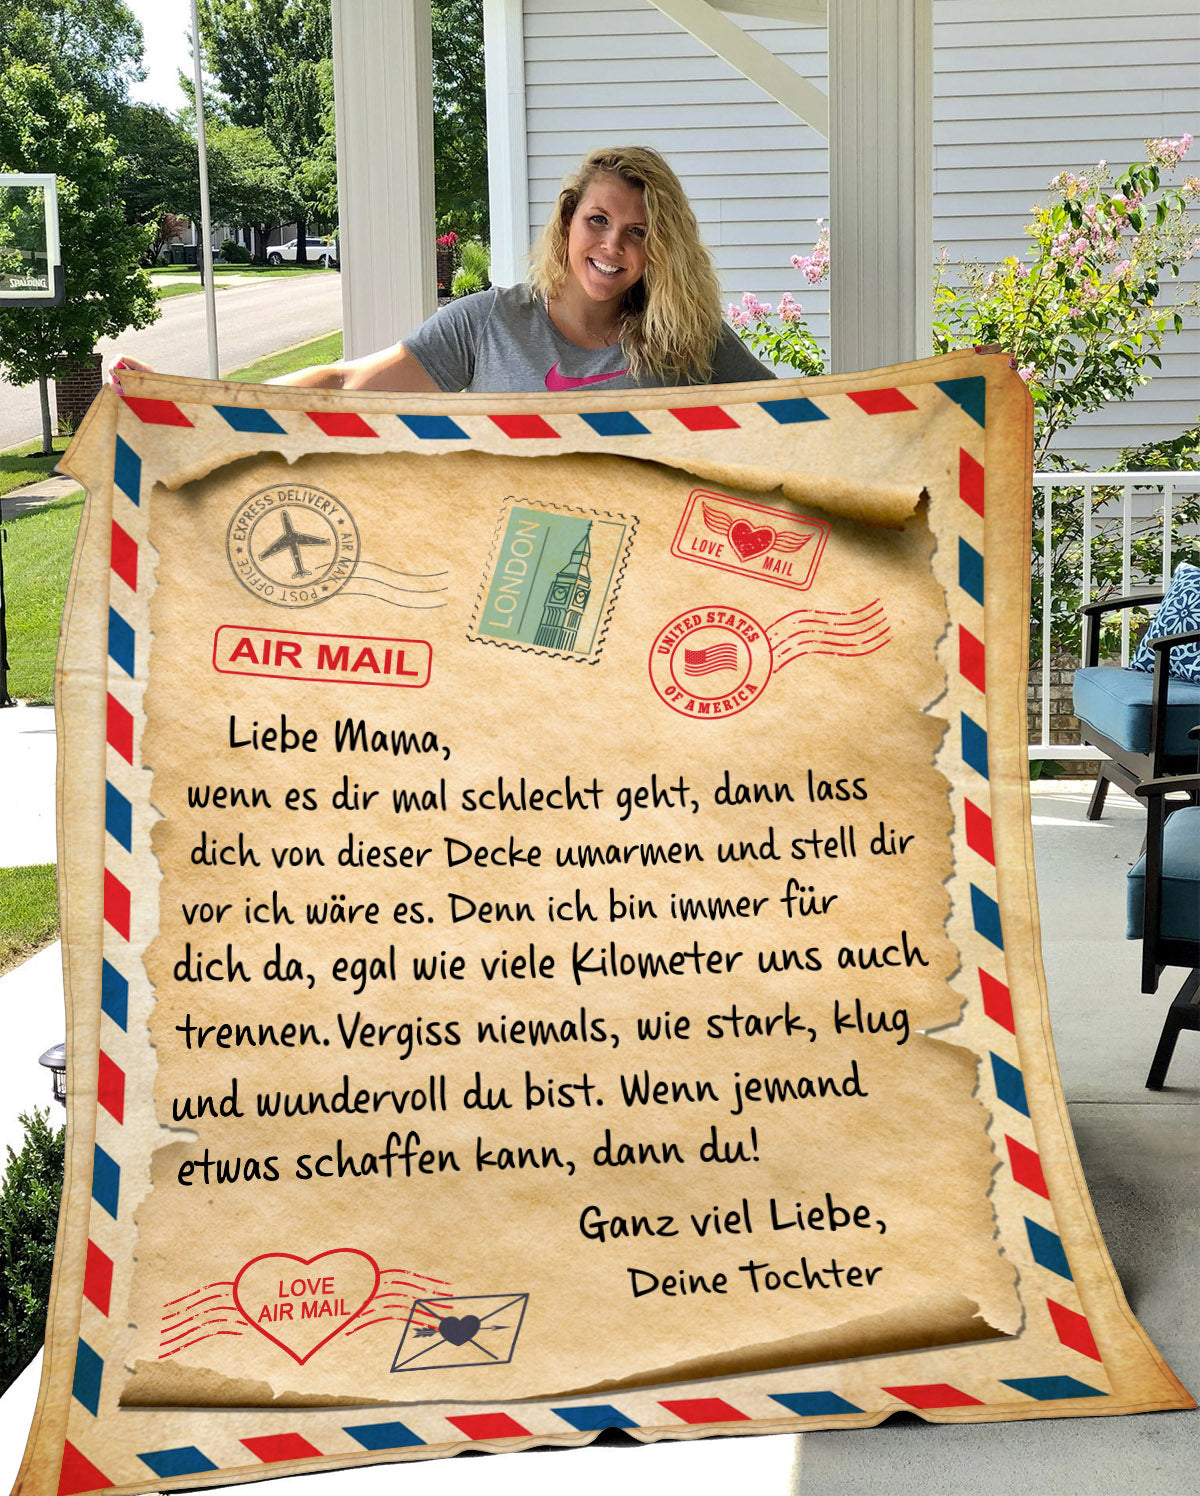 SPALDING
EXPRESS DELIVERY
AIR MAIL
POST OFFICE
LONDON
LOVE
MAIL
AIR MAIL
UNITED STATES
OF AMERICA
Liebe Mama,
wenn es dir mal schlecht geht, dann lass
dich von dieser Decke umarmen und stell dir
vor ich wäre es. Denn ich bin immer für
dich da, egal wie viele Kilometer uns auch
trennen. Vergiss niemals, wie stark, klug
und wundervoll du bist. Wenn jemand
etwas schaffen kann, dann du!
Ganz viel Liebe,
Deine Tochter
LOVE
AIR MAIL